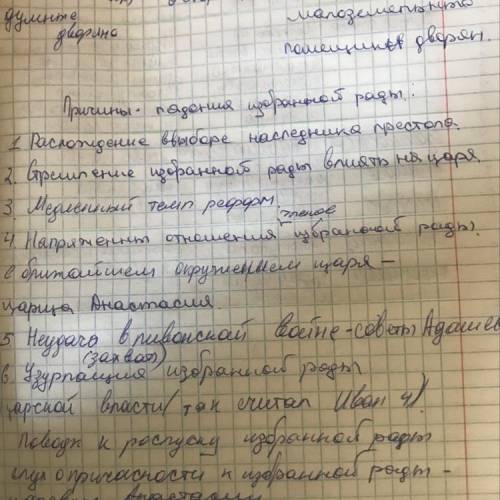 думные
дворяне
малоземельных
помещиков дворян.
Причины падения избранной рады:
1. Расхождение в выборе наследника престола.
2. Стремление избранной рады влиять на царя.
3. Медленный темп реформ.
членов
4. Напряженны отношения избранной рады.
с ближайшем окружением царя –
царица Анастасия.
5 Неудача в ливонской войне - советы Адашев
(захват)
6. Узурпация избранной рады
царской власти (так считал Иван 4).
Поводк к роспуску избранной рады
о причасности к избранной рады -